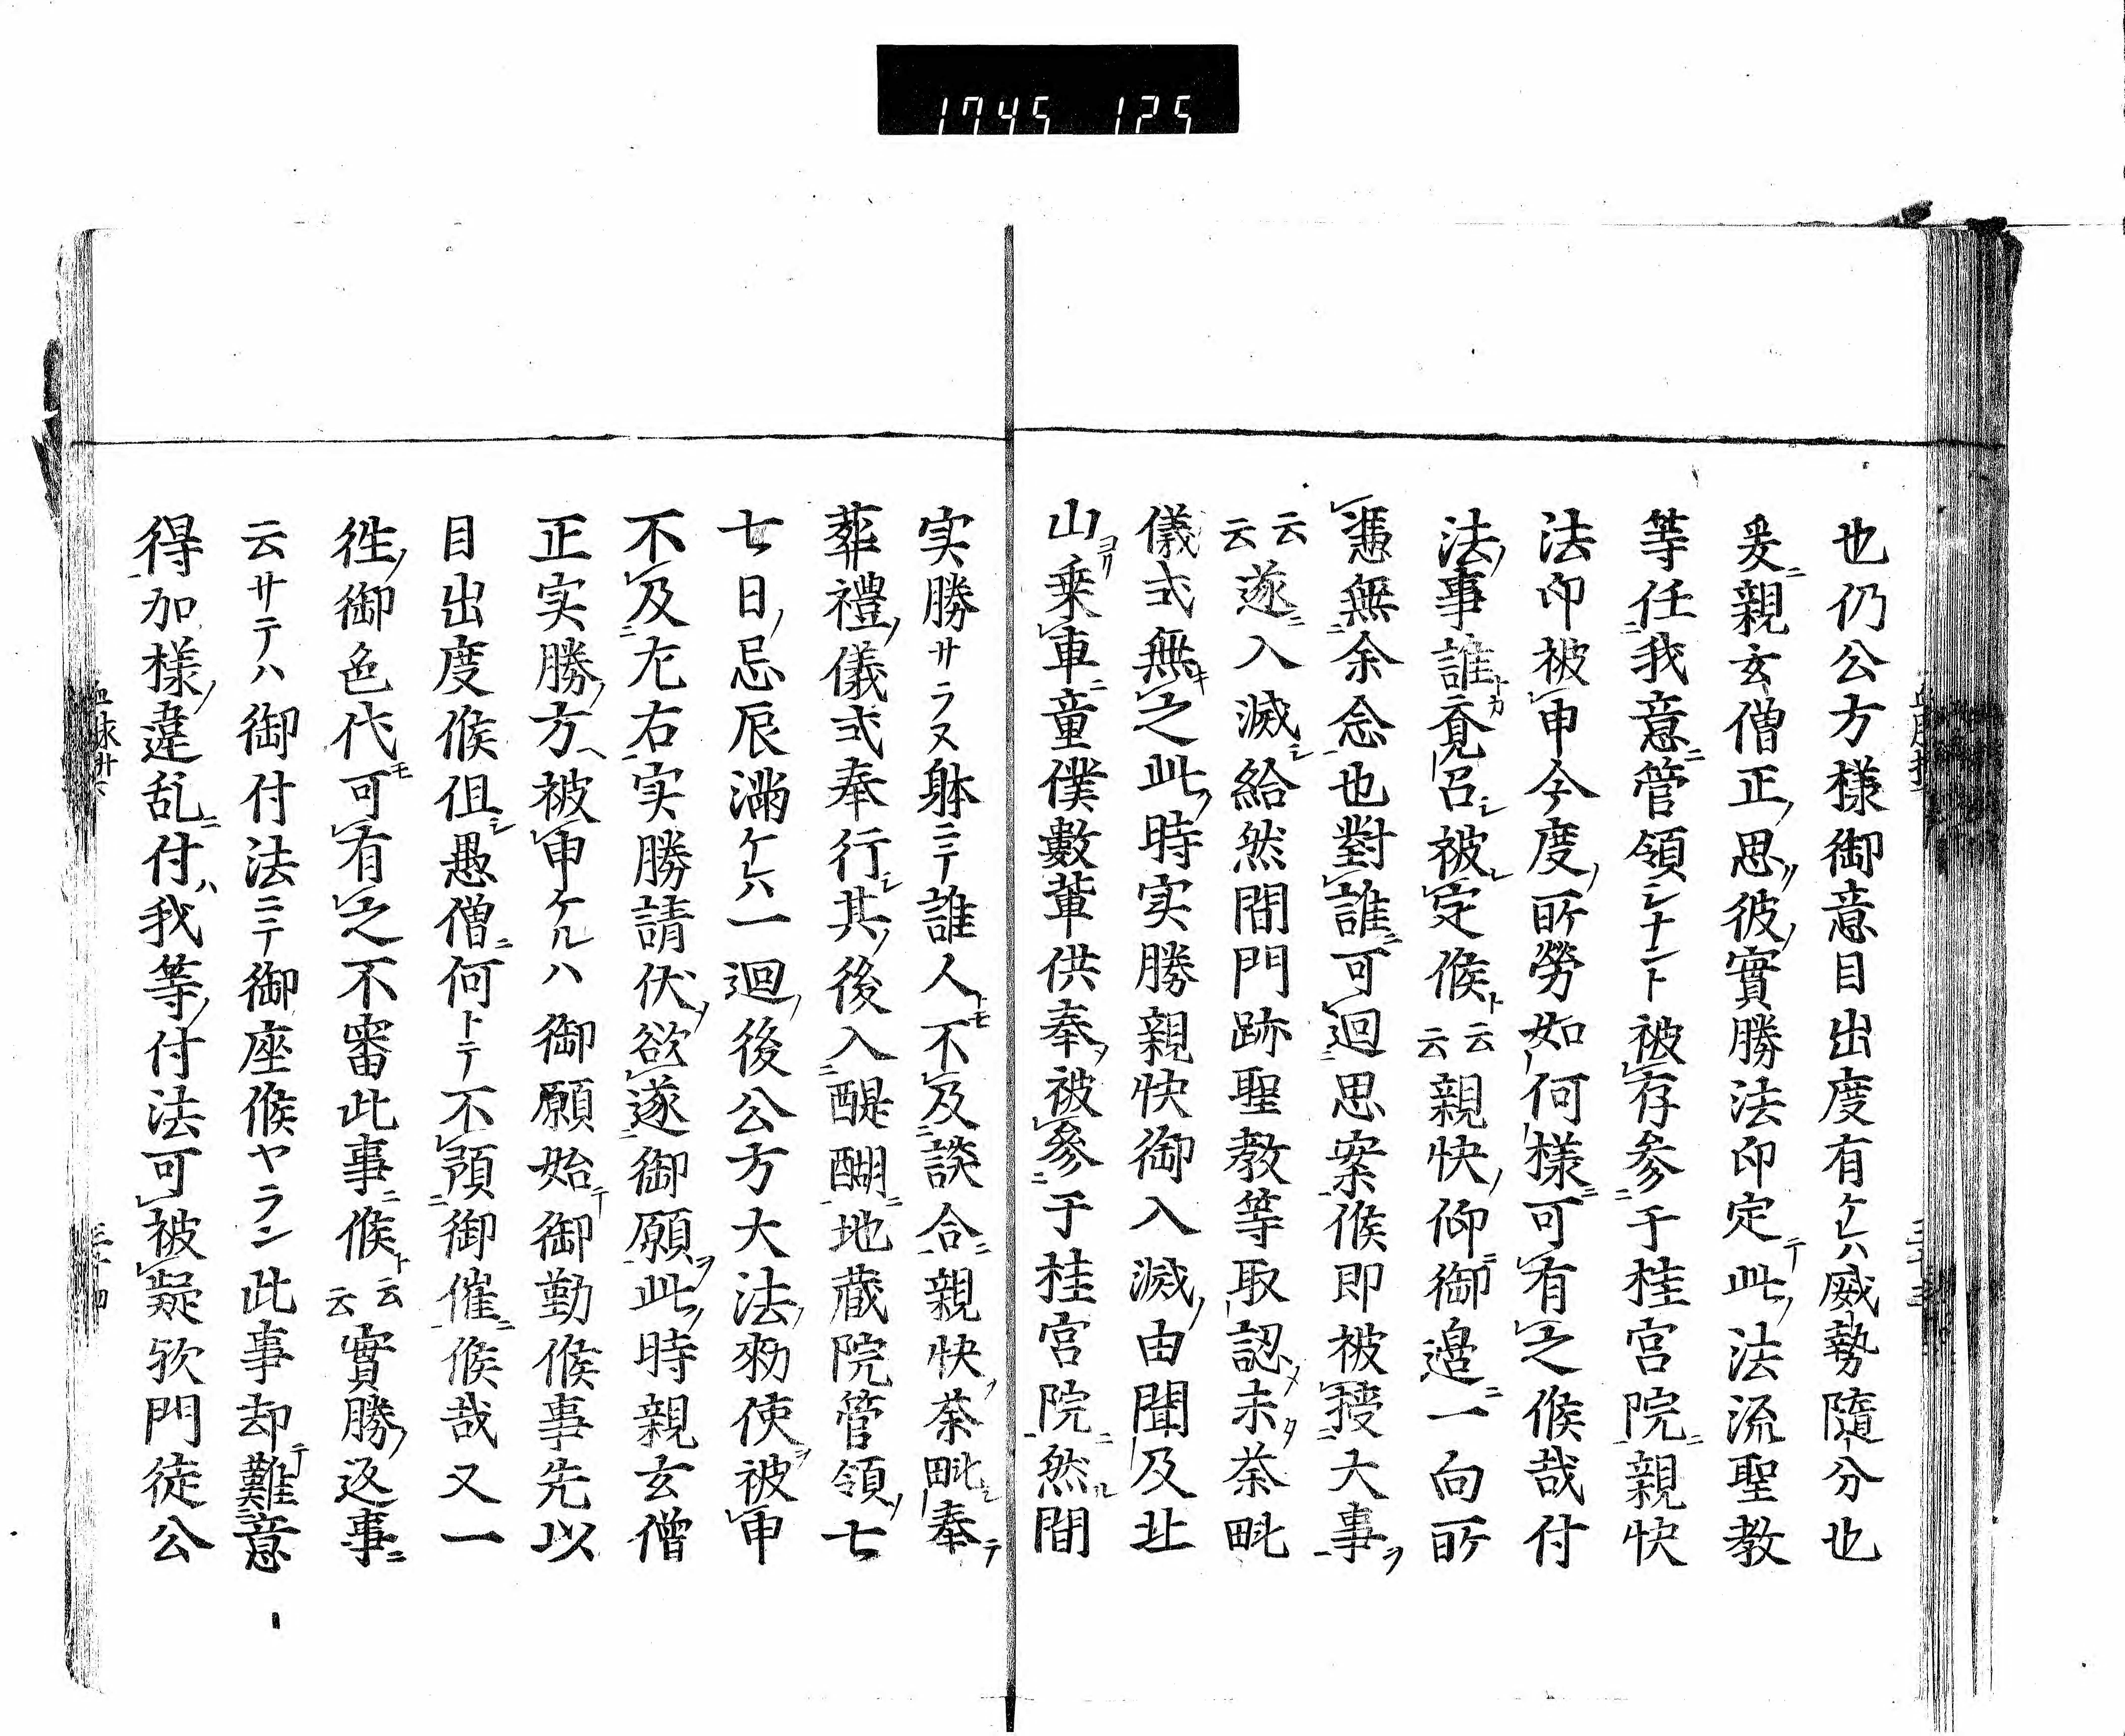 1745 125
也仍公方様御意目出度有ケレハ威勢隨分也
爰ニ親玄僧正ノ思ハク彼ノ實勝法印定テ此ノ法流聖教
等任我意ニ管領シナント被存参于桂宮院ニ親快
法印被申今度ノ所勞如何様ニ可有之候哉付
法ノ事誰トカ覔召シ被レ定候ト云云親快ノ仰ニ御邉ニ一向所
憑無余念也對誰ニ可迴思案候即被授大事ヲ
云云遂ニ入滅シ給然間門跡聖教等取認メ未タ荼毗
儀式無キ之此ノ時実勝親快御入滅ノ由聞及北
山ヨリ乗車ニ童僕數輩供奉ノ被參于桂宮院ニ然ル間
実勝サラヌ躰ニテ誰人トモ不及談合ニ親快ノ荼毗シ奉テ
葬禮ノ儀式奉行シ其ノ後入醍醐ニ地蔵院管領ノ七
七日ノ忌辰滿ケレハ一迴ノ後公方大法ノ勅使ヲ被申
不及尢右実勝請伏ノ欲遂御願ヲ此ノ時親玄僧
正実勝ノ方ヘ被申ケルハ御願始テ御勤候事先以
目出度候但シ愚僧ニ何トテ不預御催ニ候哉又一
徃ノ御色代モ可有之不審此事ニ候ト云云實勝ノ返事ニ
云サテハ御付法ニテ御座候ヤラン此事却テ難意
得加様ノ違乱ニ付ハ我等ノ付法可被疑欤門徒公